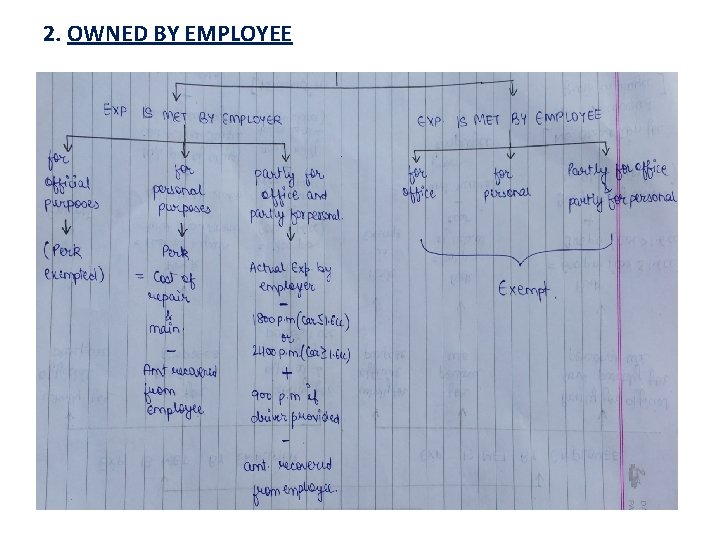 2. OWNED BY EMPLOYEE
EXP IS MET BY EMPLOYER
for
official
purposes
(Perk
exempted)
for
personal
purposes
Perk
= Cost of
repair
&
main.
-
Amt recovered
from
employee
partly for
office and
partly for personal.
Actual Exp by
employer
-
1800 p.m (Car≤1.6cc)
or
2400 p.m (Car≥1.6cc)
+
900 p.m if
driver provided
-
amt. recovered
from employee.
EXP. IS MET BY EMPLOYEE
for
office
for
personal
Partly for office
&
partly for personal
Exempt.